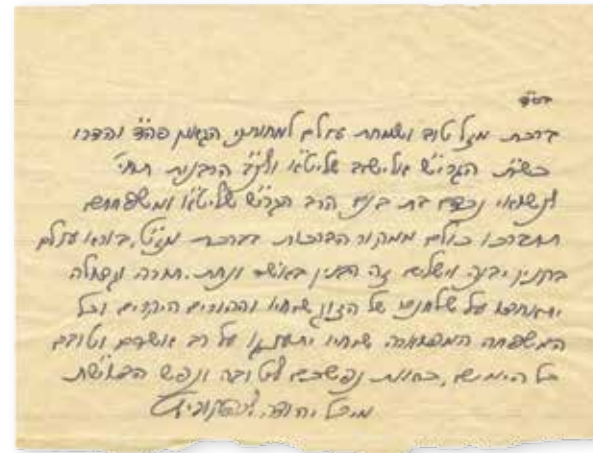 בס״ד
ברכת מזל טוב ושמחת עולם למחותני הגאון פה״ד והדרו
כש״ת הגרי״ש אלישיב שליט״א ולנ״ב הרבנית תחי׳
לנשואי נכדם בת בנם הרב הגר״ש שליט״א ומשפחתם
תתברכו כולם ממקור הברכות בברכת מז״ט, בורא עולם
בקנין יבנה וישלים זה הבנין באושר ונחת. תורה וגדולה
יתאחדו על שלחנם של הזוג שיחיו וההורים היקרים וכל
המשפחה המפוארה שיחיו יתענגו על רב אושרם וטובם
כל הימים, כחות נפשכם לטובה ונפש הדו״שת
מיכל יהודה ליפקוביץ